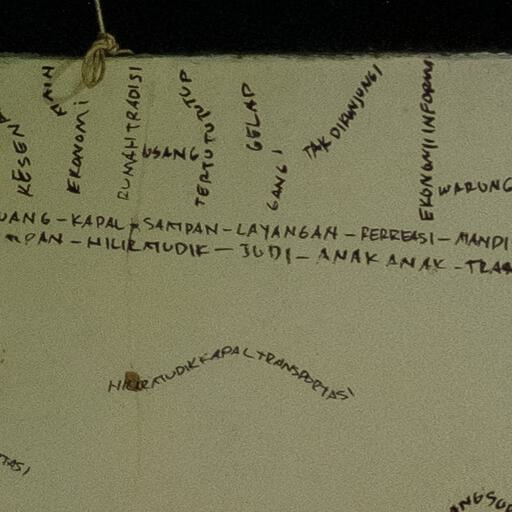 KESEN
MAIN
EKONOMI
RUMAH TRADISI
USANG
TERTUTUTUP
GELAP
GANG I
TAK DIKUNJUNGI
EKONOMI INFORM
WARUNG
UANG - KAPAL SAMPAN - LAYANGAN - REKREASI - MANDI
MPAN - HILIR MUDIK - JUDI - ANAK ANAK - TRA
HILIR MUDIK KAPAL TRANSPORTASI
TASI